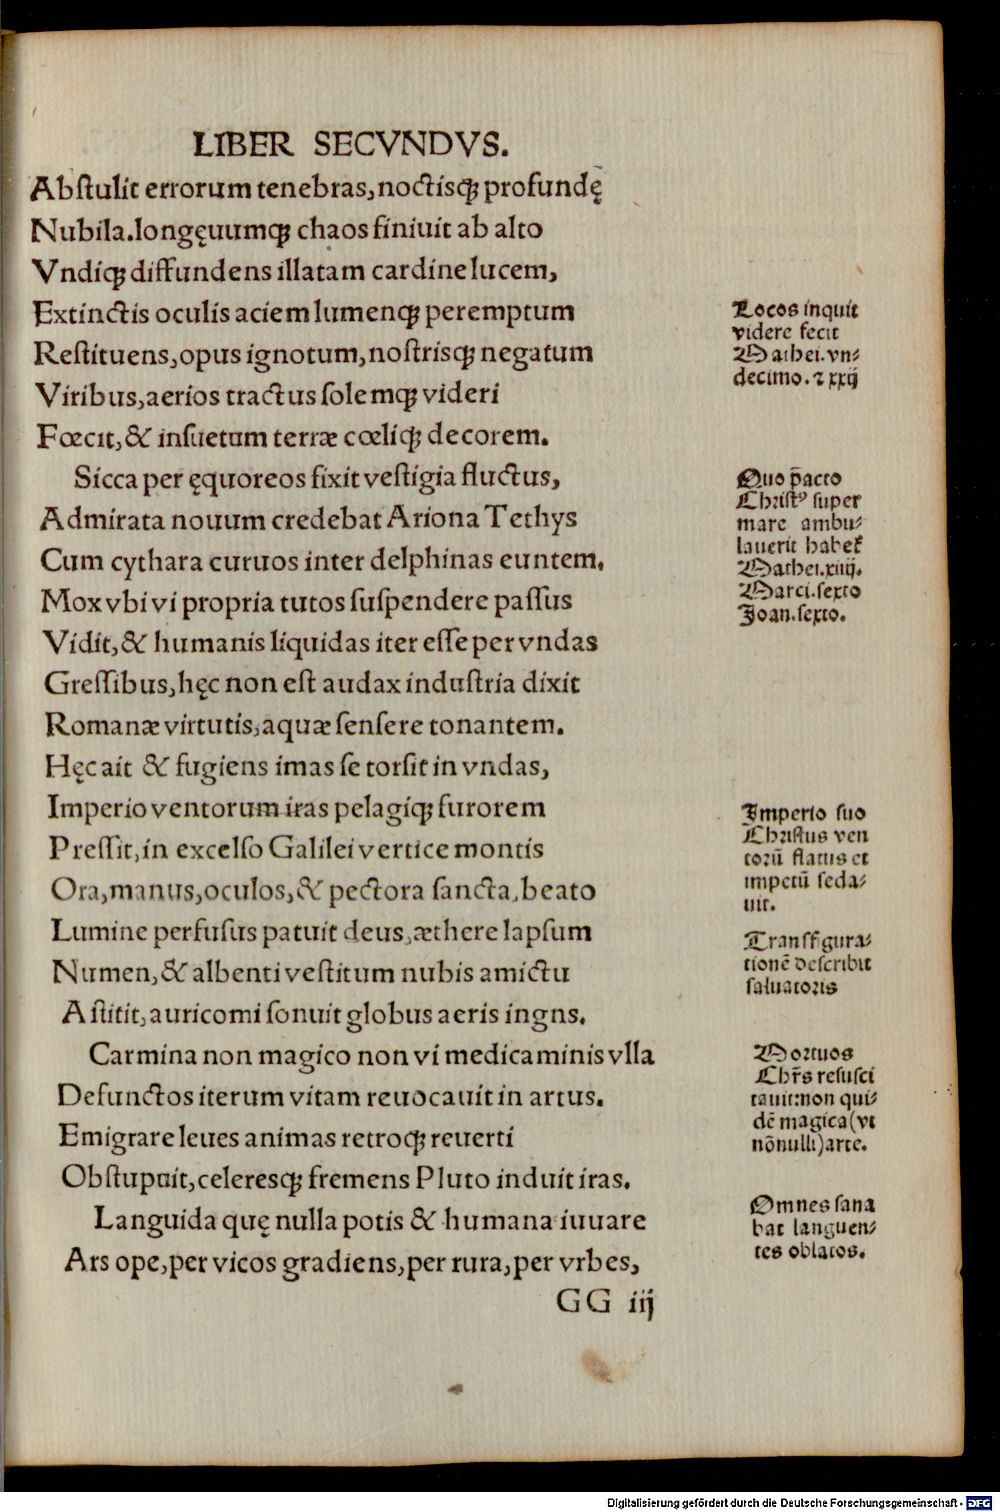 LIBER SECVNDVS.
Abstulit errorum tenebras,noctisqꝫ profundę
Nubila.longęuumqꝫ chaos finiuit ab alto
Vndiqꝫ diffundens illatam cardine lucem,
Extinctis oculis aciem lumenqꝫ peremptum
Restituens,opus ignotum,nostrisqꝫ negatum
Viribus,aerios tractus solemqꝫ videri
Fœcit,& insuetum terræ cœliqꝫ decorem.
Sicca per ęquoreos fixit vestigia fluctus,
Admirata nouum credebat Ariona Tethys
Cum cythara curuos inter delphinas euntem.
Mox vbi vi propria tutos suspendere passus
Vidit,& humanis liquidas iter esse per vndas
Gressibus,hęc non est audax industria dixit
Romanæ virtutis,aquæ sensere tonantem.
Hęc ait & fugiens imas se torsit in vndas,
Imperio ventorum iras pelagiqꝫ furorem
Pressit,in excelso Galilei vertice montis
Ora,manus,oculos,& pectora sancta,beato
Lumine perfusus patuit deus,æthere lapsum
Numen,& albenti vestitum nubis amictu
Astitit,auricomi sonuit globus aeris ingns.
Carmina non magico non vi medicaminis vlla
Defunctos iterum vitam reuocauit in artus.
Emigrare leues animas retroqꝫ reuerti
Obstupuit,celeresqꝫ fremens Pluto induit iras.
Languida quę nulla potis & humana iuuare
Ars ope,per vicos gradiens,per rura,per vrbes,
GG iij
Locos inquit
videre fecit
Mathei.vn⸗
decimo.⁊ xxij
Quo p̄acto
Christꝰ super
mare ambu⸗
lauerit habet̄
Mathei.xiiij.
Marci.sexto
Joan.sexto.
Imperio suo
Christus ven
torū flatus et
impetū seda⸗
uit.
Transfigura⸗
tionē describit
saluatoris
Mortuos
Chr̄s resusci
tauit:non qui⸗
dē magica(vt
nōnulli)arte.
Omnes sana
bat languen⸗
tes oblatos.
Digitalisierung gefördert durch die Deutsche Forschungsgemeinschaft - DFG